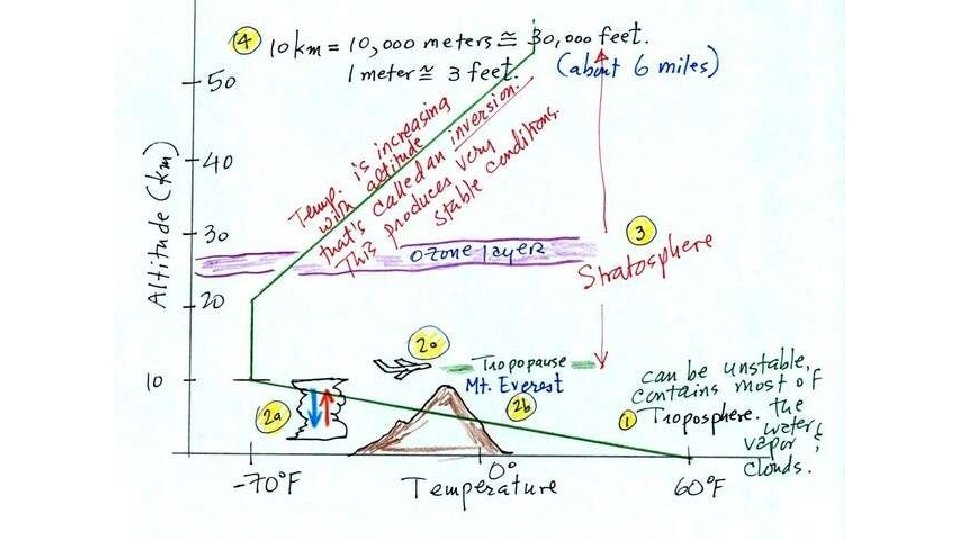 ④ 10 km = 10,000 meters ≅ 30,000 feet.
1 meter ≅ 3 feet. (about 6 miles)
50
40
30
20
10
Altitude (km)
Temp. is increasing
with altitude
that's called an inversion.
This produces very
stable conditions.
ozone layer
③
Stratosphere
2c
Tropopause
Mt. Everest
2b
2a
can be unstable,
contains most of
① Troposphere. the
water
vapor &
clouds.
-70°F
0°
60°F
Temperature